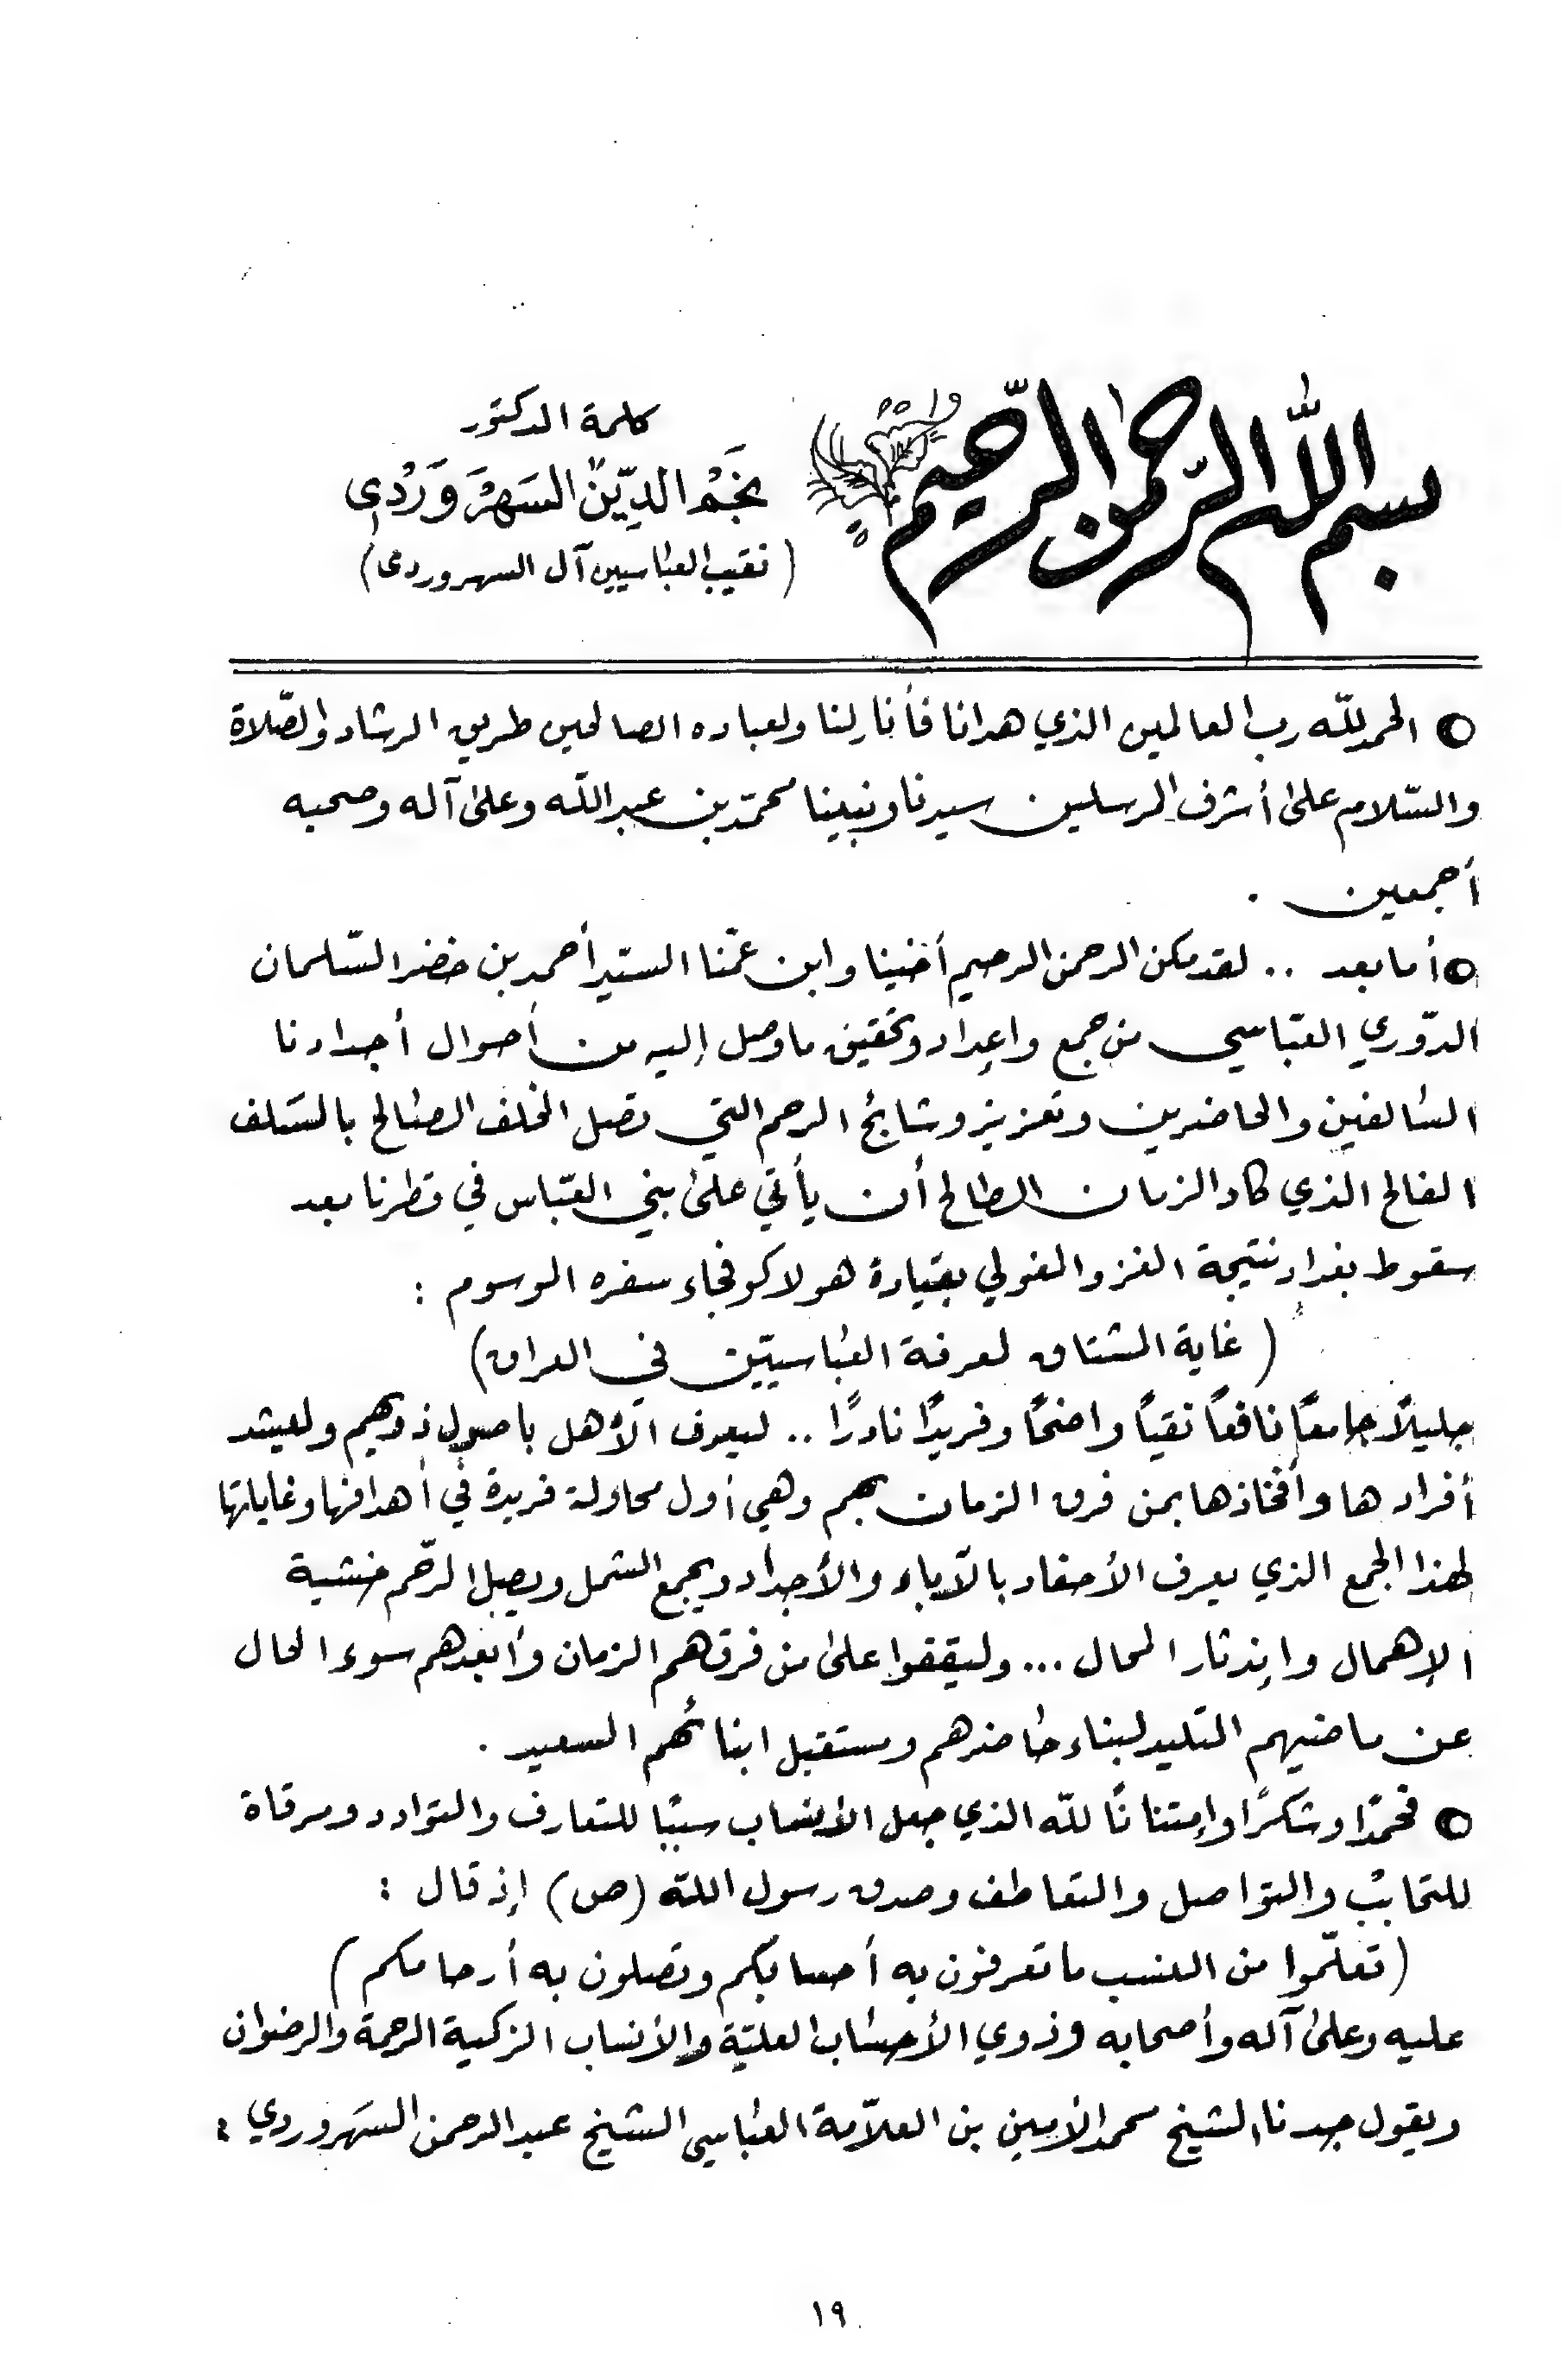 بسم الله الرحمن الرحيم
كلمة الدكتور
نَجَمْ الدِّيّنْ السَهْرَوَرْدْي
(نقيب العباسيين آل السهروردي)
الحمد لله رب العالمين الذي هدانا فأنار لنا ولعباده الصالحين طريق الرشاد والصّلاة
والسّلام على أشرف المرسلين سيدنا ونبينا محمّد بن عبد اللّه وعلى آله وصحبه
أجمعين .
أما بعد .. لقد مكن الرحمن الرحيم أخينا وابن عمّنا السيّد أحمد بن خضر السّلمان
الدّوري العبّاسي من جمع وإعداد وتحقيق ما وصل إليه من أحوال أجدادنا
السالفين والحاضرين وتعزيز وشائج الرحم التي تصل الخلف الصالح بالسَلف
الفالح الذي كاد الزمان الطالح أن يأتي على بني العبّاس في قطرنا بعد
سقوط بغداد نتيجة الغزو المغولي بقيادة هولاكو فجاء سفره الموسوم :
(غاية المشتاق لمعرفة العباسيّين في العراق)
جليلاً جامعاً نافعاً نقياً واضحاً وفريدًا نادرًا .. ليعرف الأهل باصول ذويهم ولميشد
أفرادها وأفخاذها بمن فرق الزمان بهم وهي أول محاولة فريدة في أهدافها وغاياتها
لهذا الجمع الذي يعرف الأحفاد بالآباء والأجداد ويجمع الشمل ويصل الرّحم خشية
الإهمال وإندثار المحال ... وليقفوا على من فرقهم الزمان وأبعدهم سوء الحال
عن ماضيهم التليد لبناء حاضرهم ومستقبل ابنائهم السعيد .
فحمدًا وشكرًا وإمتنانًا للّه الذي جعل الأنساب سببًا للتعارف والتوادد ومرقاة
للتحابب والتواصل والتعاطف وصدق رسول اللّه (ص) إذ قال :
(تعلّموا من النسب ما تعرفون به أحسابكم وتصلون به أرحامكم)
عليه وعلى آله وأصحابه وذوي الأحساب العليّة والأنساب الزكية الرحمة والرضوان
ويقول جدنا الشيخ محمد الأمين بن العلاّمة العباسي الشيخ عبد الرحمن السَهروردي :
١٩